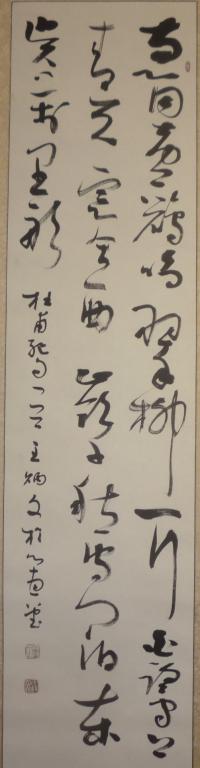 兩個黃鸝鳴翠柳一行白鷺上
青天窗含西嶺千秋雪門泊東
吳萬里船
杜甫絕句一首王炳文於